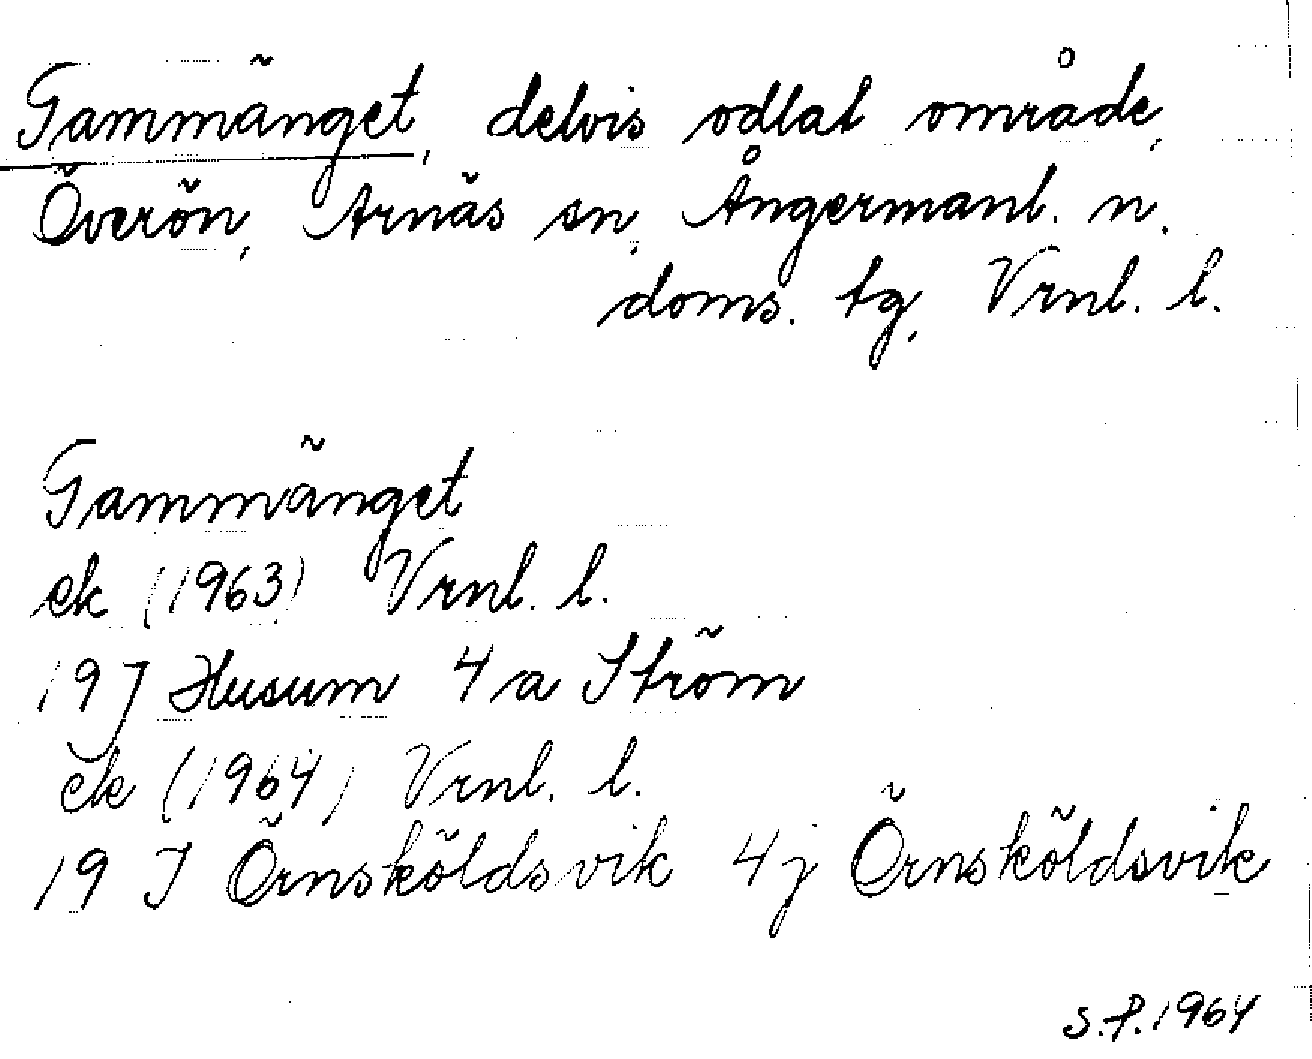 Tammänget, delvis odlat område,
Överön, Arnäs sn, Ångermanl. n.
doms. tg, Vrnl. l.
Tammänget
ek (1963) Vrnl. l.
19 J Husum 4 a Ström
ek (1964) Vrnl. l.
19 I Örnsköldsvik 4 j Örnsköldsvik
S.P. 1964